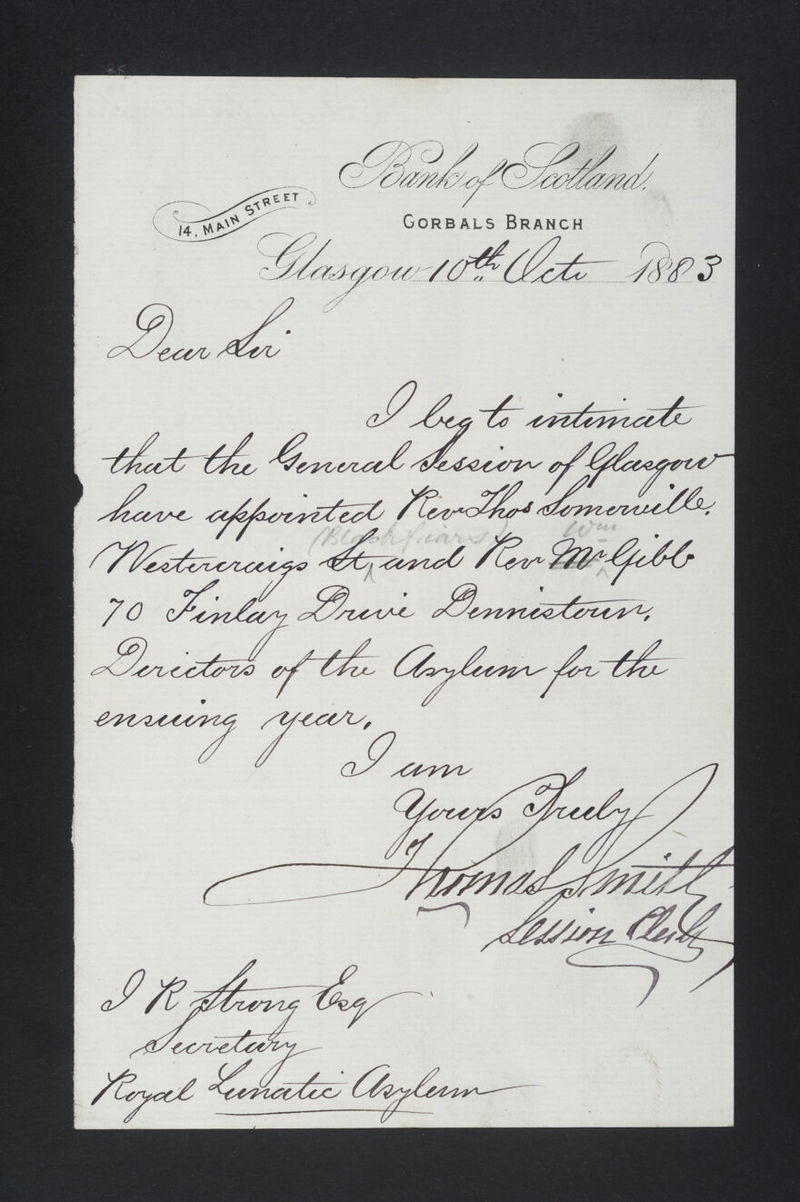 Bank of Scotland.
14, MAIN STREET
GORBALS BRANCH
Glasgow 10th Oct 1883
Dear Sir
I beg to intimate
that the General Session of Glasgow
have appointed Rev Thos Somerville.
(Blackfriars) Wm
Westercraigs St, and Rev Mr Gibb
70 Finlay Drive Dennistoun.
Directors of the Asylum for the
ensuing year.
I am
Yours Truly
Thomas Smith
Session Clerk
J R Strong Esq
Secretary
Royal Lunatic Asylum